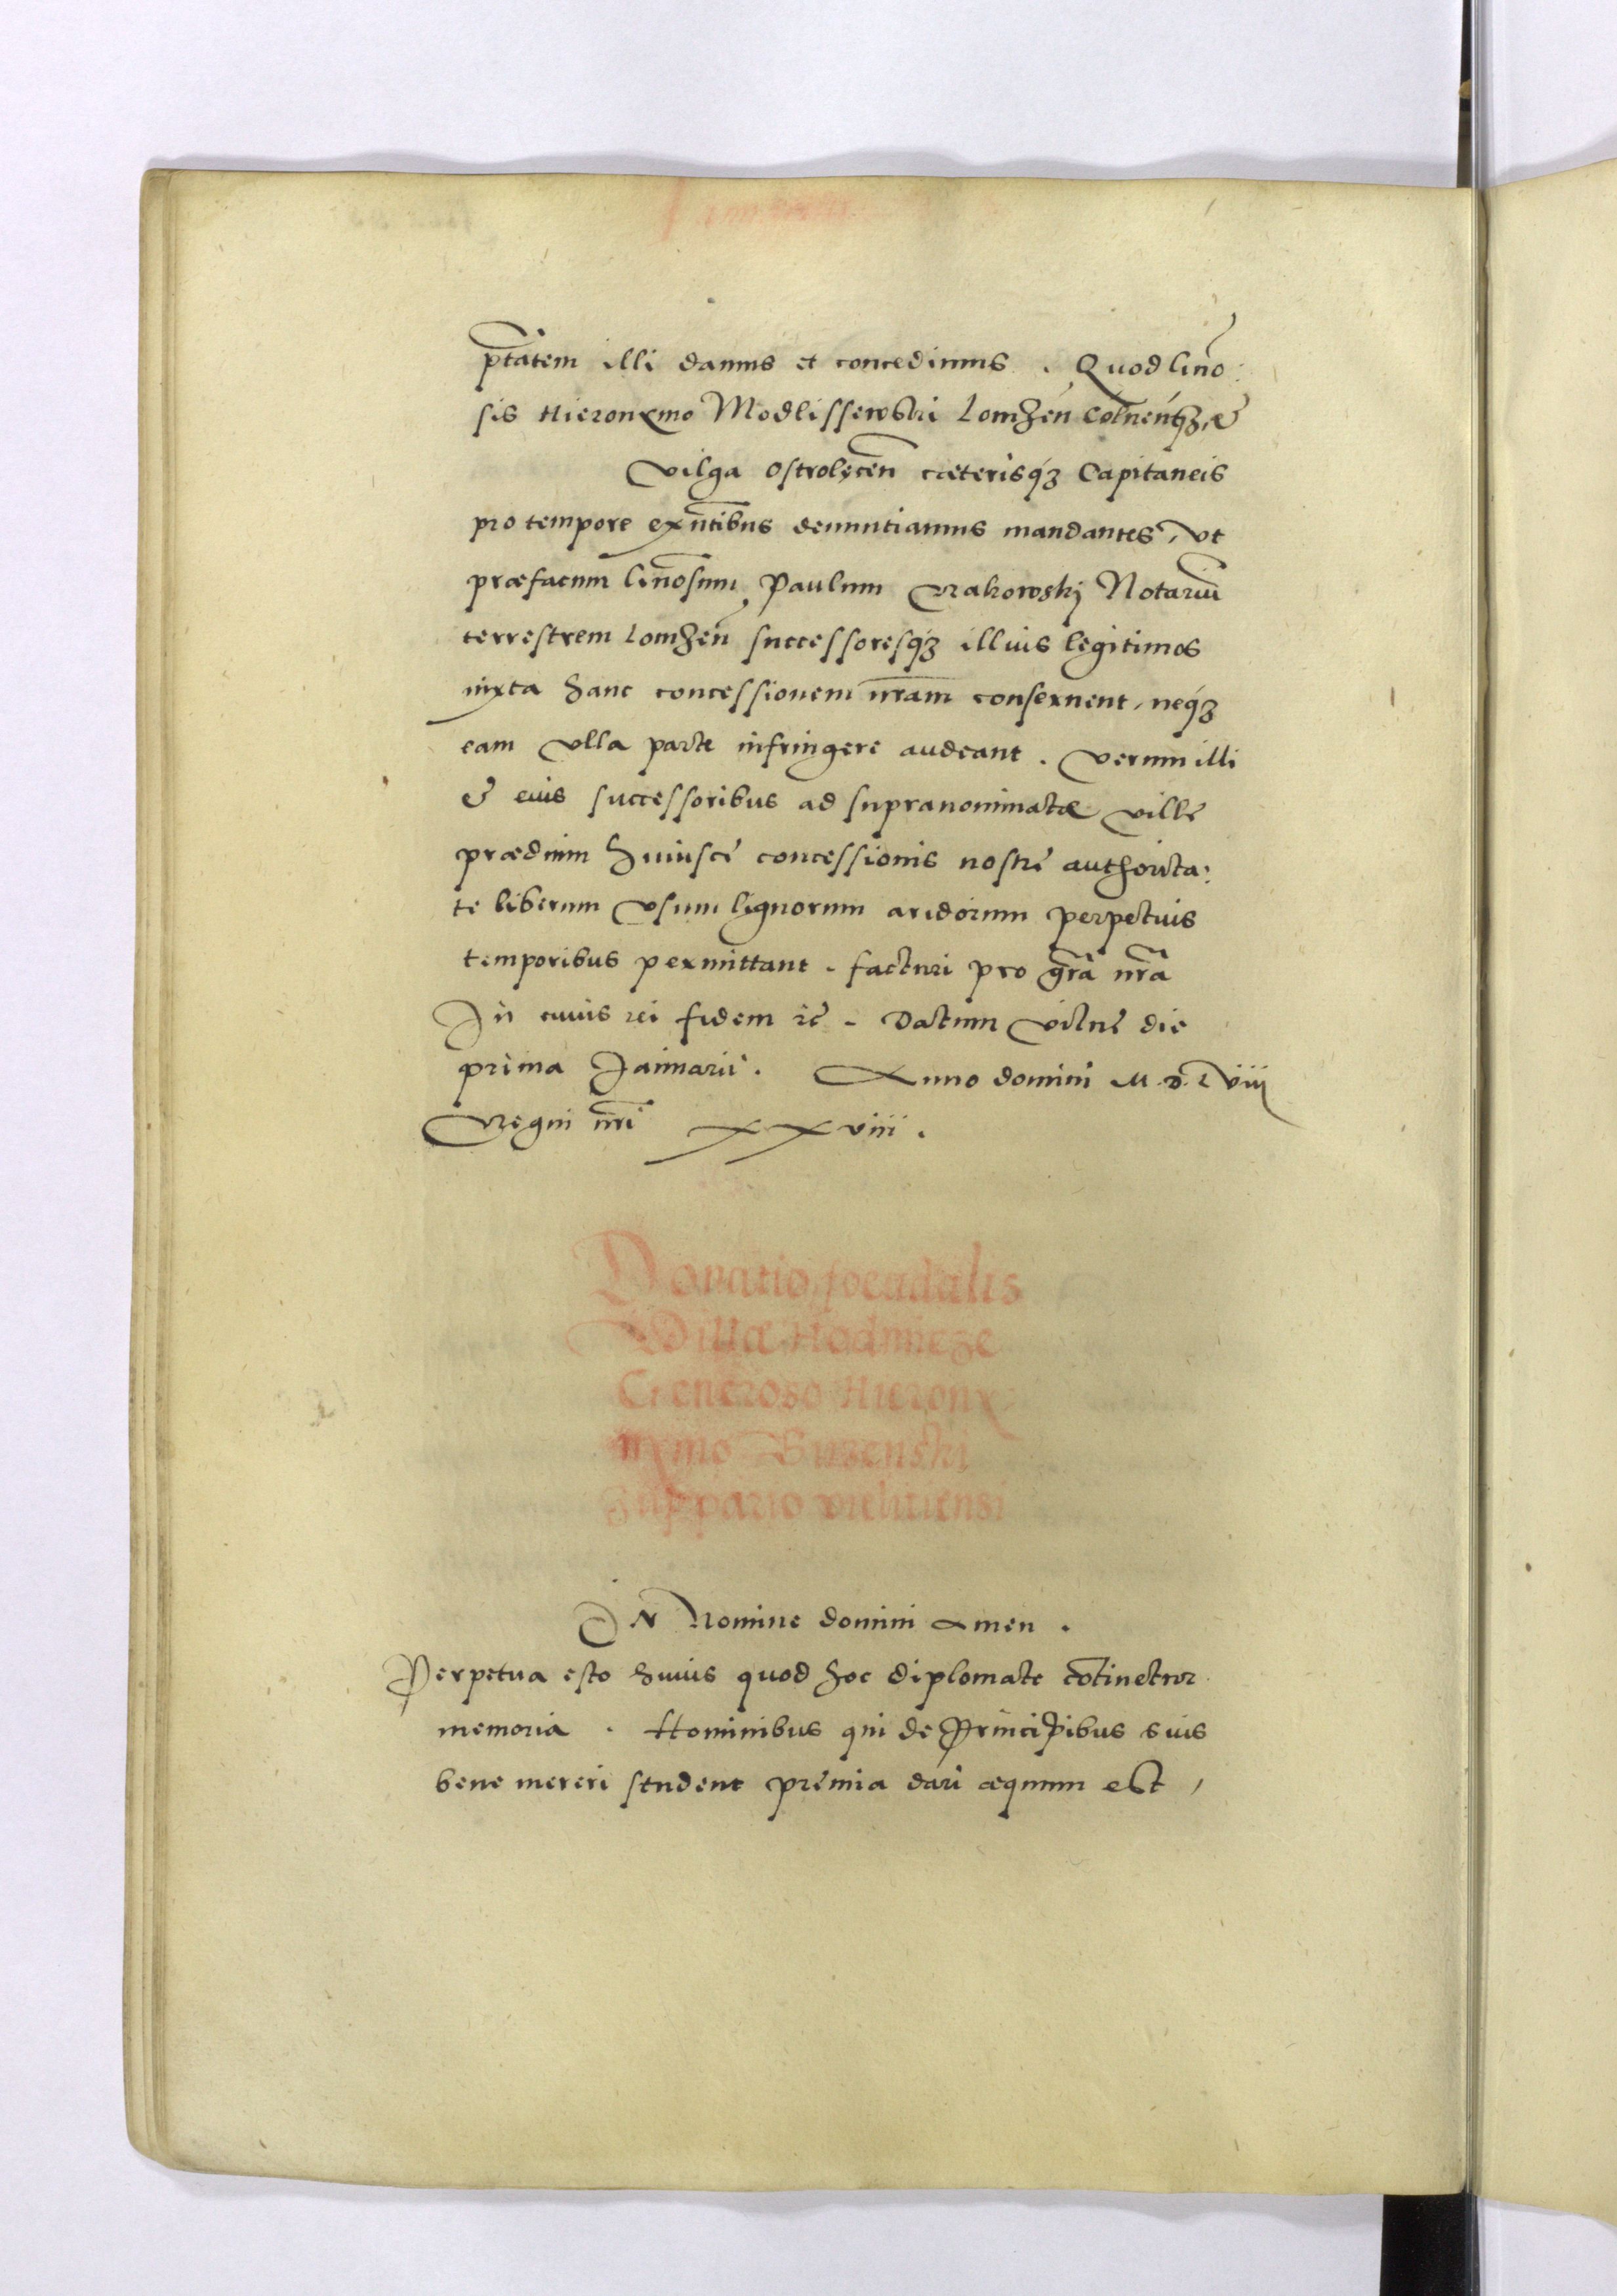 ptatem illi damus et concedimus . Quod Gno
sis Hieronymo Modlissewski Lomzen Colnenqz, &
Vilga Ostrolecen cæterisqz Capitaneis
pro tempore exntibus denuntiamus mandantes, vt
præfatum Gnosum Paulum Rakowskj Notariu
terrestrem Lomzen successoresqz illius legitimos
iuxta hanc concessionem nram conseruent, neqz
eam vlla parte infringere audeant . Verum illi
& eius successoribus ad supranominatæ villæ
prædium huiusce concessionis nostre authorita:
te liberum vsum lignorum aridorum perpetuis
temporibus permittant . facturi pro gra nra
In cuius rei fidem rc . Datum Vilne die
prima Januarii . Anno domini M.D.Lviii
Regni nri xxviii .
Donatio foeudalis
Villæ Hodmieze
Generoso Hierony
mo Buzenski
Zuppario vieliciensi
IN Nomine domini Amen .
Perpetua esto huius quod hoc diplomate cotinetur
memoria . Hominibus qui de Principibus suis
bene mereri student premia dari æquum est ,